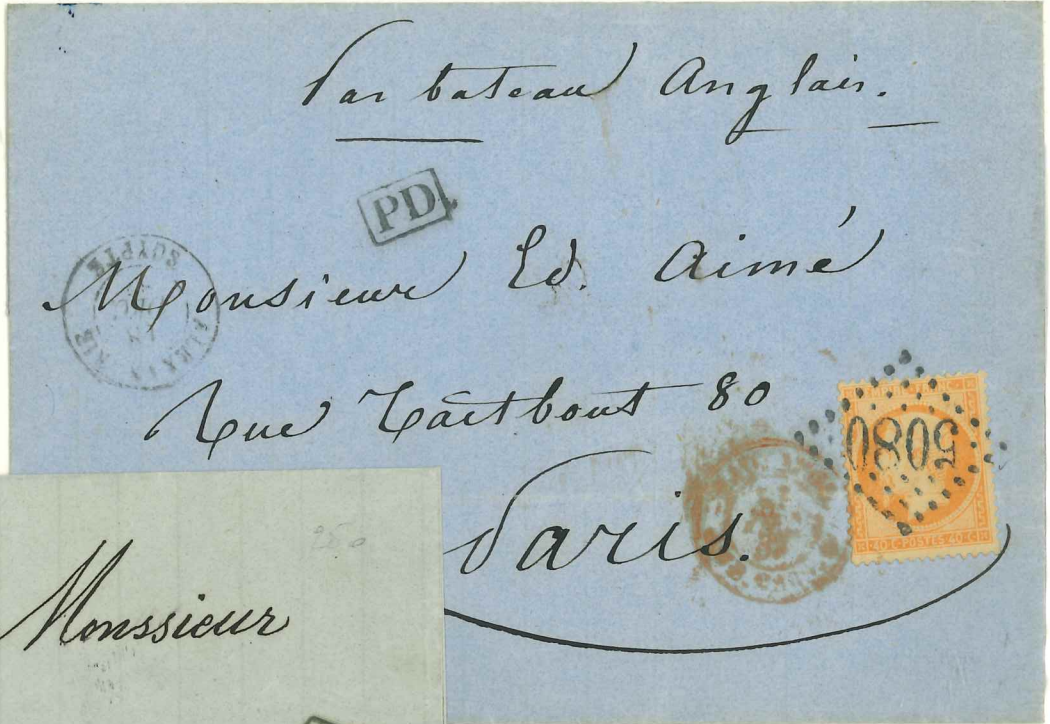 Par bateau Anglais.
PD
EGYPTE
Monsieur Ed. Aimé
Rue Taitbout 80
Paris.
5080
40 C · POSTES · 40 C
Monssieur